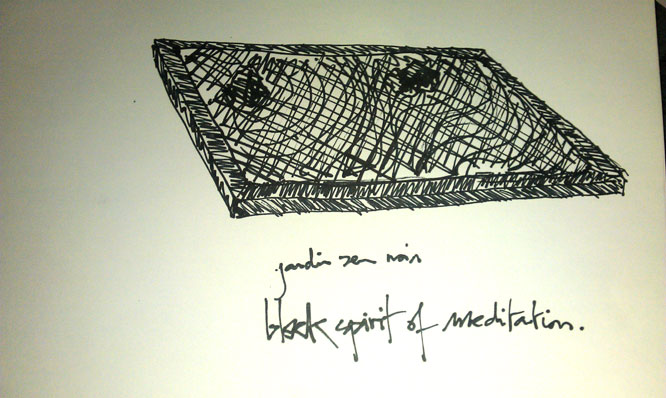 jardin zen noir
black spirit of meditation.